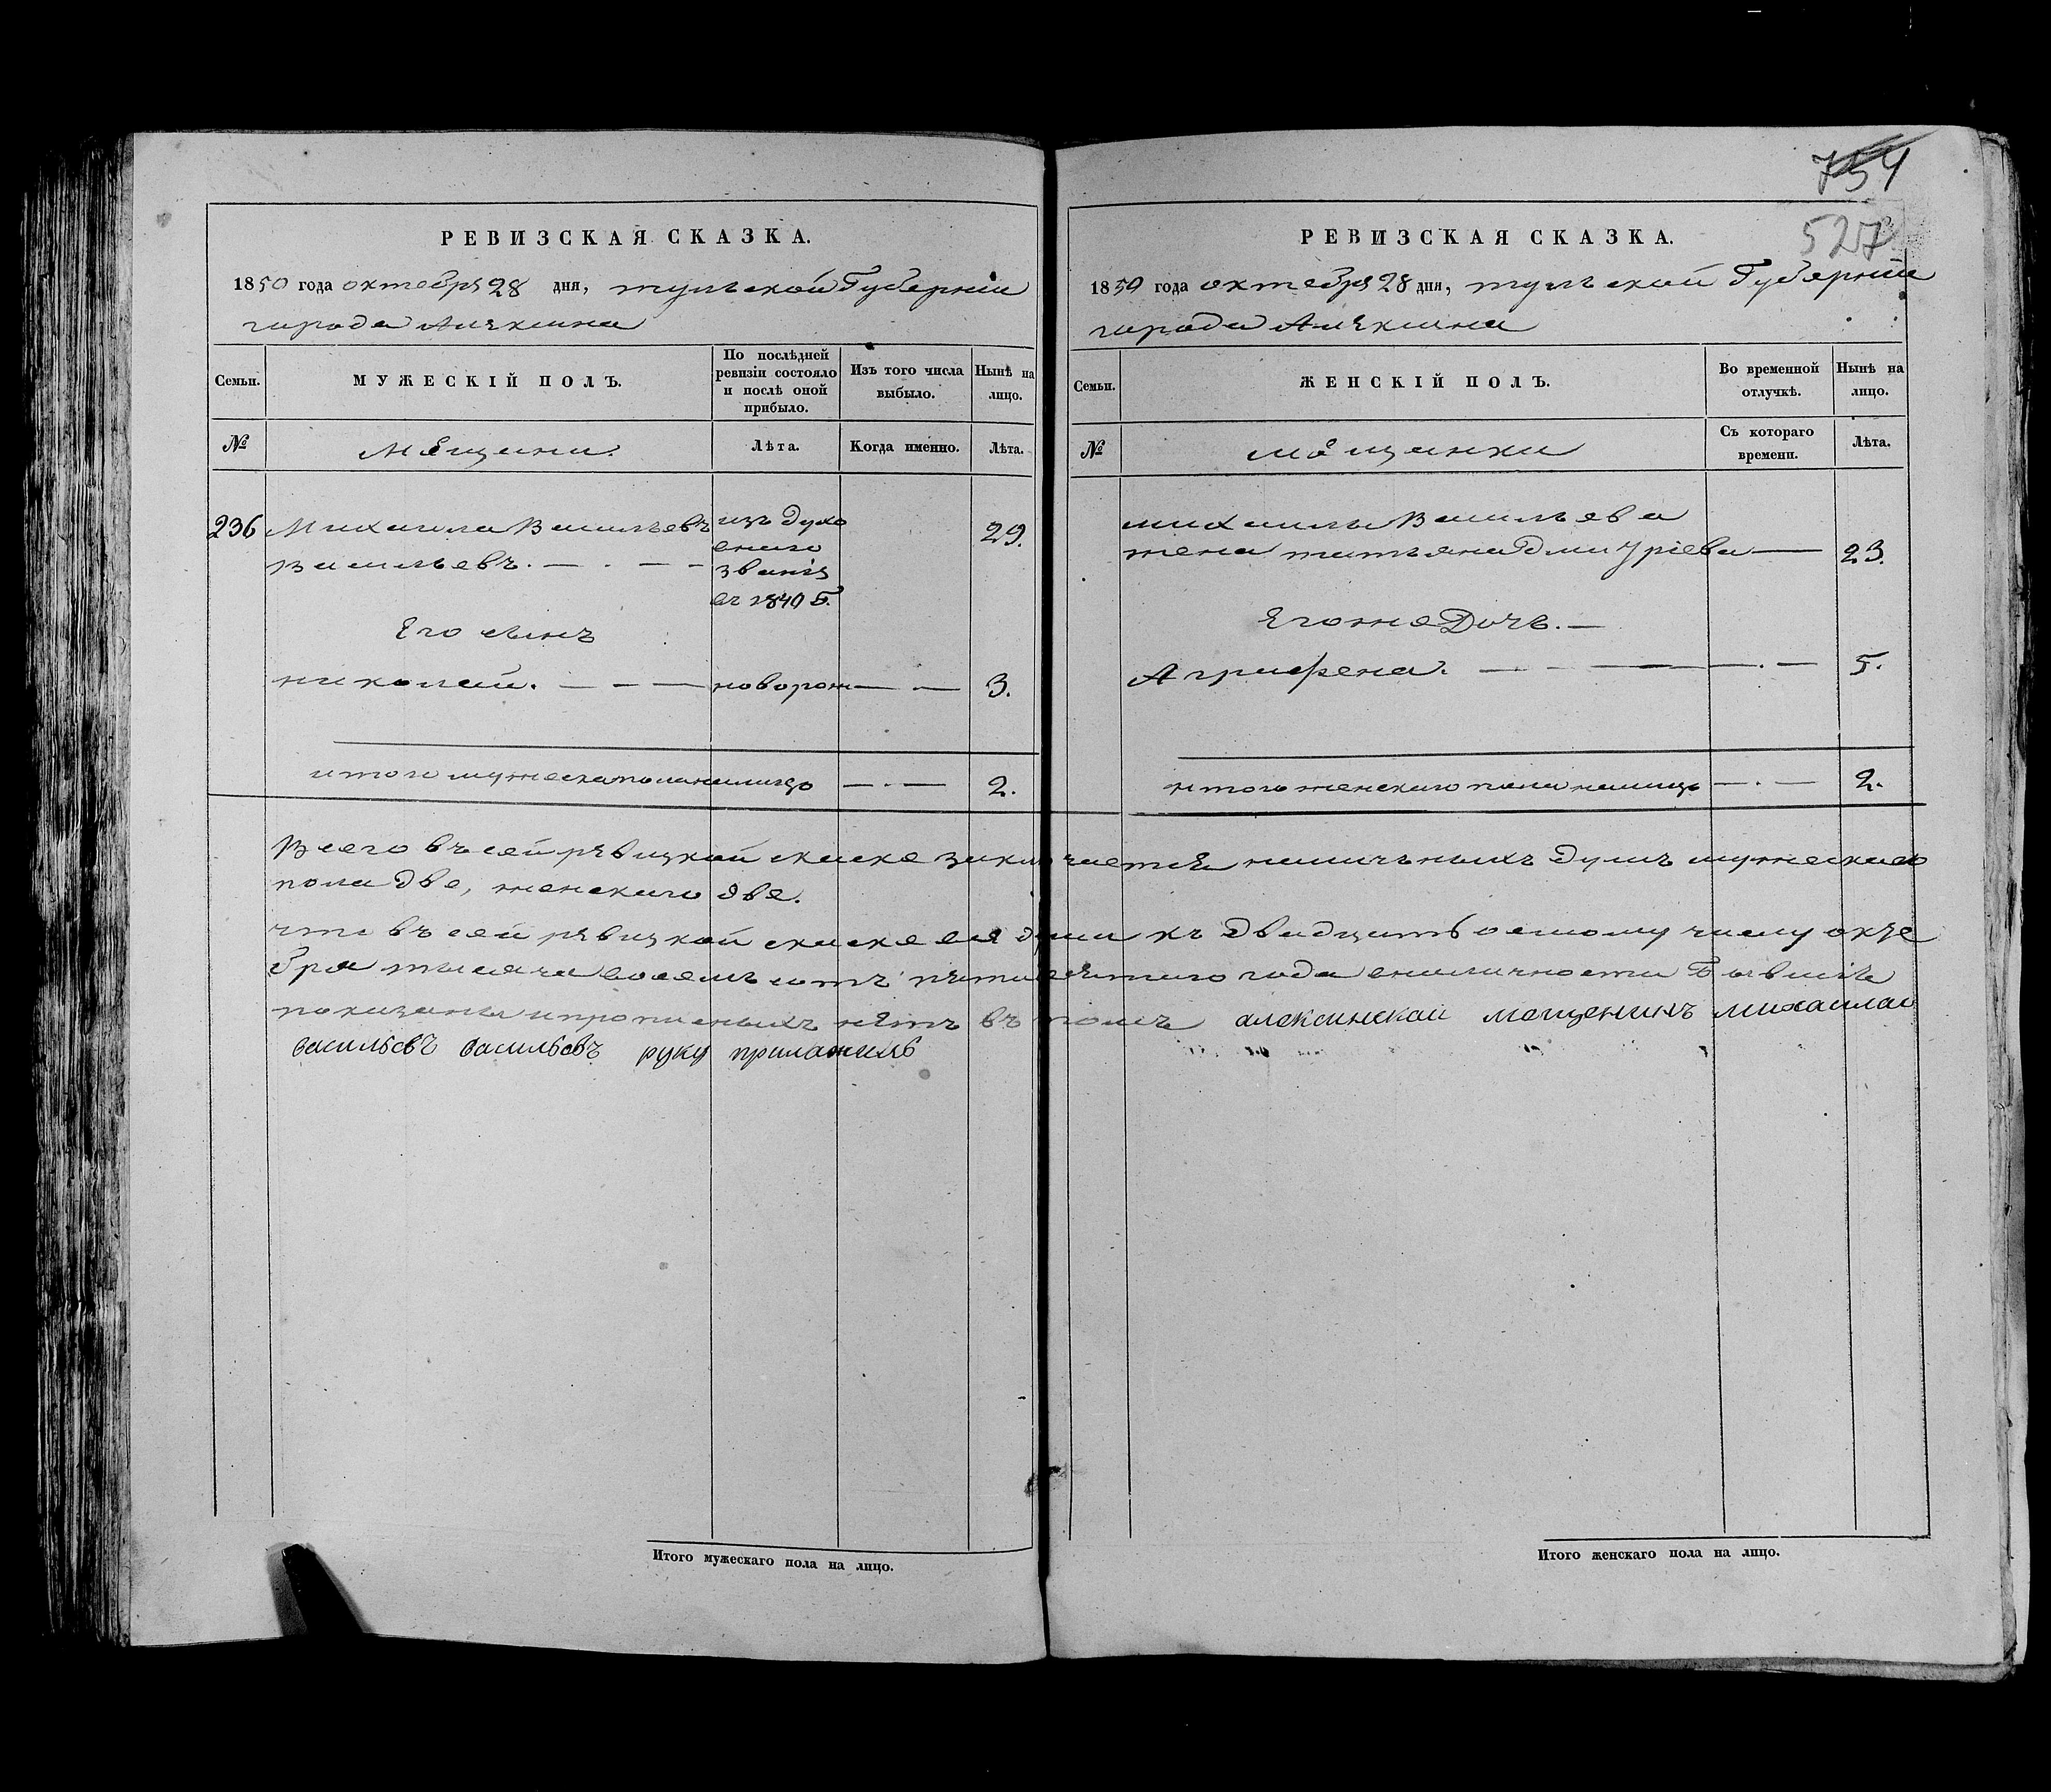 754
527
РЕВИЗСКАЯ СКАЗКА.
1850 года октебря 28 дня, тульской Губерніи
города Алексина
Семьи.
МУЖЕСКІЙ ПОЛЪ.
По послѣдней ревизіи состояло и послѣ оной прибыло.
Изъ того числа выбыло.
Нынѣ на лицо.
№
Мещани.
Лѣта.
Когда именно.
Лѣта.
236 Михаила Васильевъ изъ духо 29.
Васильевъ. — . — — снаго
званія
съ 1840 Г.
Его сынъ
николай. — — — новорож — — 3.
итого мужескаполаналицо — . — 2.
РЕВИЗСКАЯ СКАЗКА.
1850 года октебря 28 дня, тульской Губерніи
города Алексина
Семьи.
ЖЕНСКІЙ ПОЛЪ.
Во временной отлучкѣ.
Нынѣ на лицо.
№
мещанки
Съ котораго времени.
Лѣта.
михаилы Васильева
жена татьяна Дмитріева — 23.
Его же Дочь. —
Аграфена. — — — — . — 5.
итого женскаго пола налицо — . — 2.
Всего въ сей ревизкой скаске заключается наличьныхъ душъ мужескаго
пола две, женскаго две.
что въ сей ревизкой скаске все души къ двадцать осмому числу октe
бря тысяча восемь сотъ пятидесятаго года вналичности Бывшіе
показаны ипрописныхъ нетъ въ томъ алексинской мещенинъ михаила
васильевъ васильевъ руку приложилъ
Итого мужескаго пола на лицо.
Итого женскаго пола на лицо.